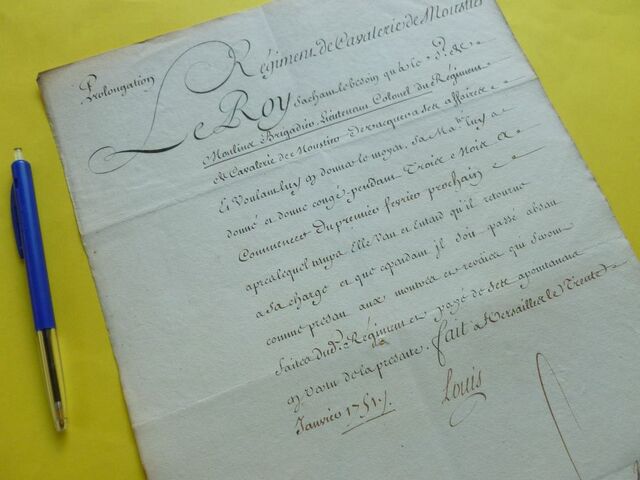 Prolongation
Régiment de Cavalerie de Moustiers
Le Roy Sachant le besoin qu'a le S.r de
Moulins Brigadier Lieutenant Colonel du Régiment
de Cavalerie de Moustiers Devacquer a ses affaires
Et Voulant luy en donner le moyen, Sa Ma.té luy a
donné et donne congé pendant Trois Mois a
Commencer Du premier fevrier prochain
apres lequel temps Elle Veut et Entend qu'il retourne
a sa charge et que cependant il soit passé absent
comme present aux montres et reveües qui seront
faites dud. Régiment et payé de ses apointemens
en vertu de la presente. fait a Versailles le Trente
Janvier 1757.
Louis